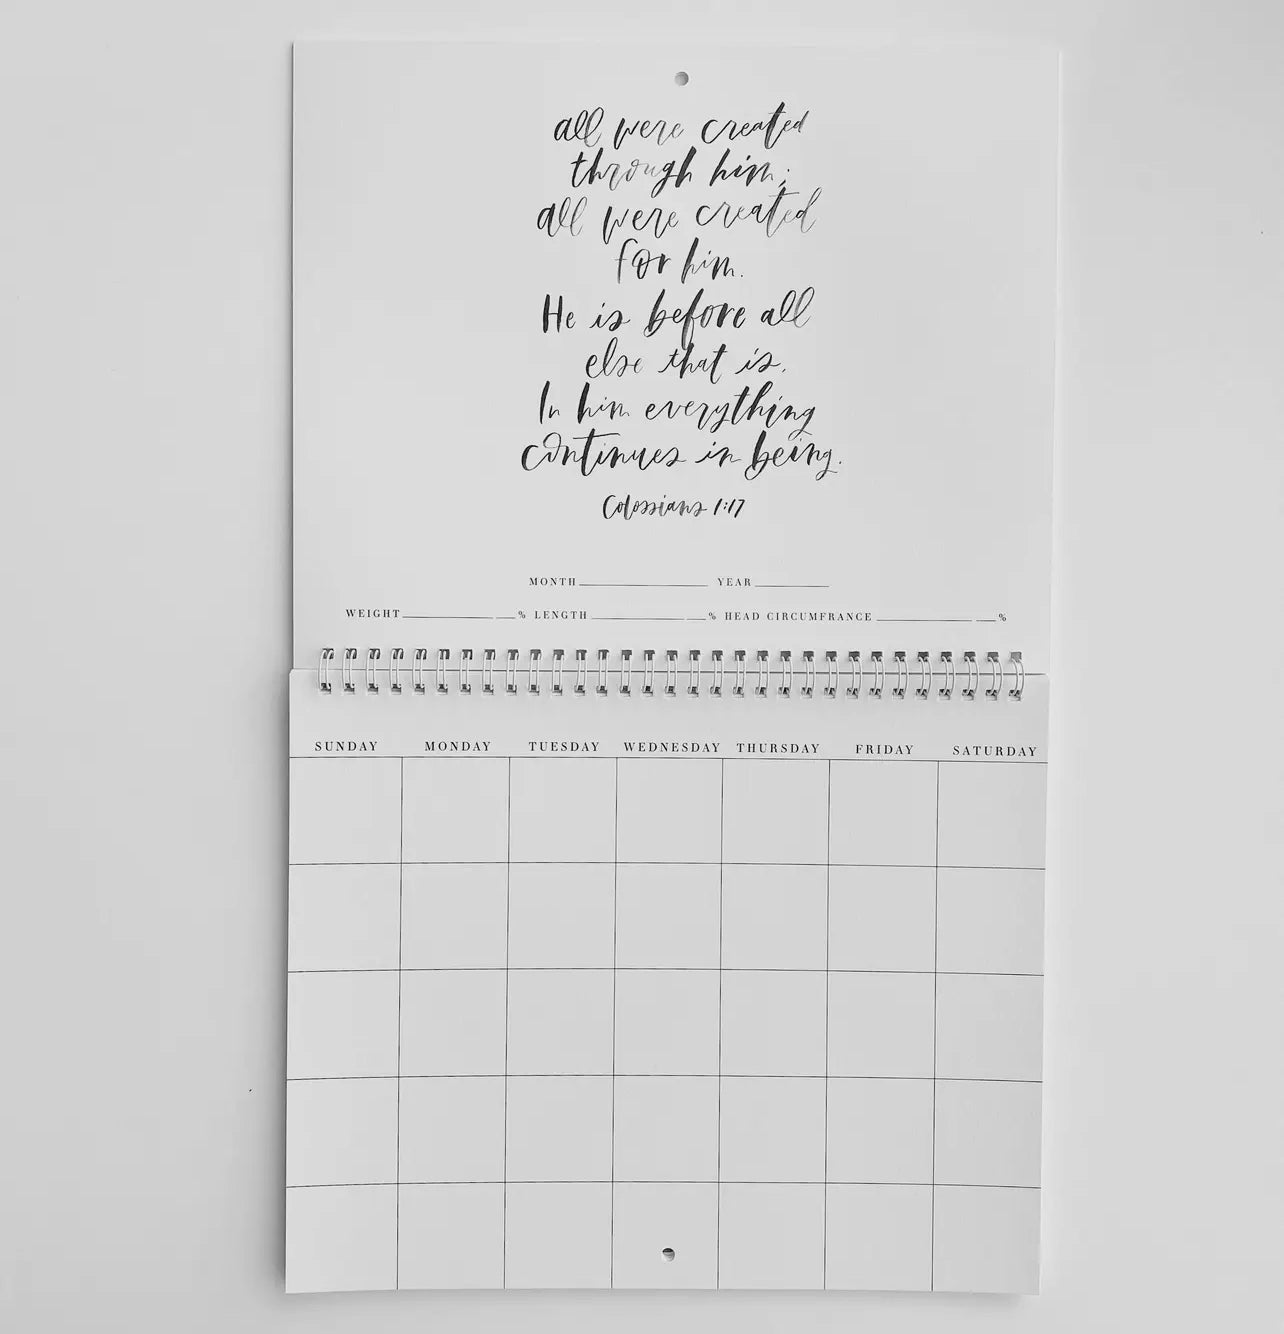 all were created
through him;
all were created
for him.
He is before all
else that is.
In him everything
continues in being.
Colossians 1:17
MONTH YEAR
WEIGHT % LENGTH % HEAD CIRCUMFRANCE %
SUNDAY MONDAY TUESDAY WEDNESDAY THURSDAY FRIDAY SATURDAY